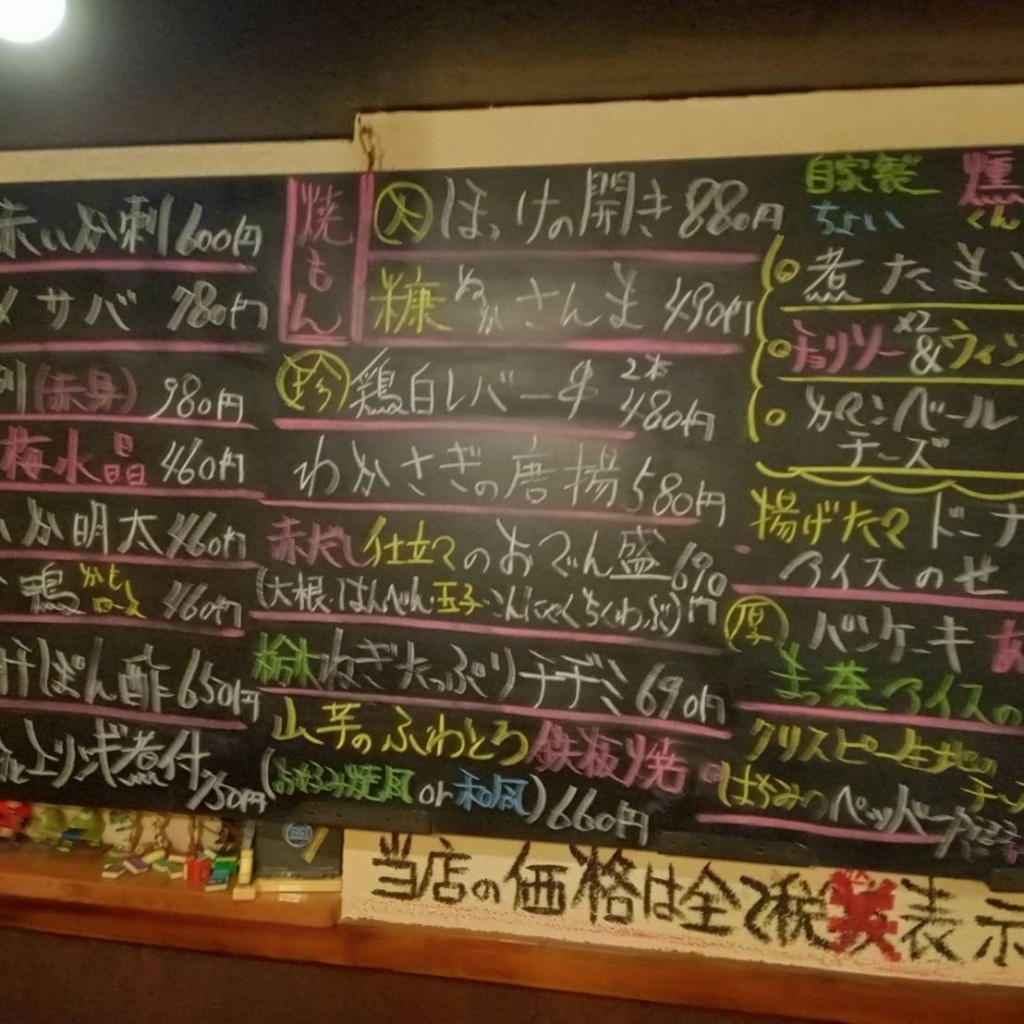 赤いか刺 600円
〆サバ 780円
刺(赤身) 980円
梅水晶 460円
いか明太 460円
鴨 かも ロース 460円
肝ぽん酢 650円
煮付 750円
焼もん
大 ほっけの開き 880円
糠 ぬか さんま 490円
珍 鶏白レバー串 2本 480円
わかさぎの唐揚 580円
赤だし仕立てのおでん盛 690円
(大根・はんぺん・玉子・こんにゃく・ちくわぶ)
ねぎたっぷりチヂミ 690円
山芋のふわとろ鉄板焼
(お好み焼風 or 和風) 660円
自家製 燻
ちょい くん
煮たまご
チョリソー x2 & ウィン
カマンベール
チーズ
揚げたて ドーナ
アイスのせ
厚 パンケーキ あ
まっ茶アイスの
クリスピー生地の
はちみつペッパー チー
当店の価格は全て税 表示